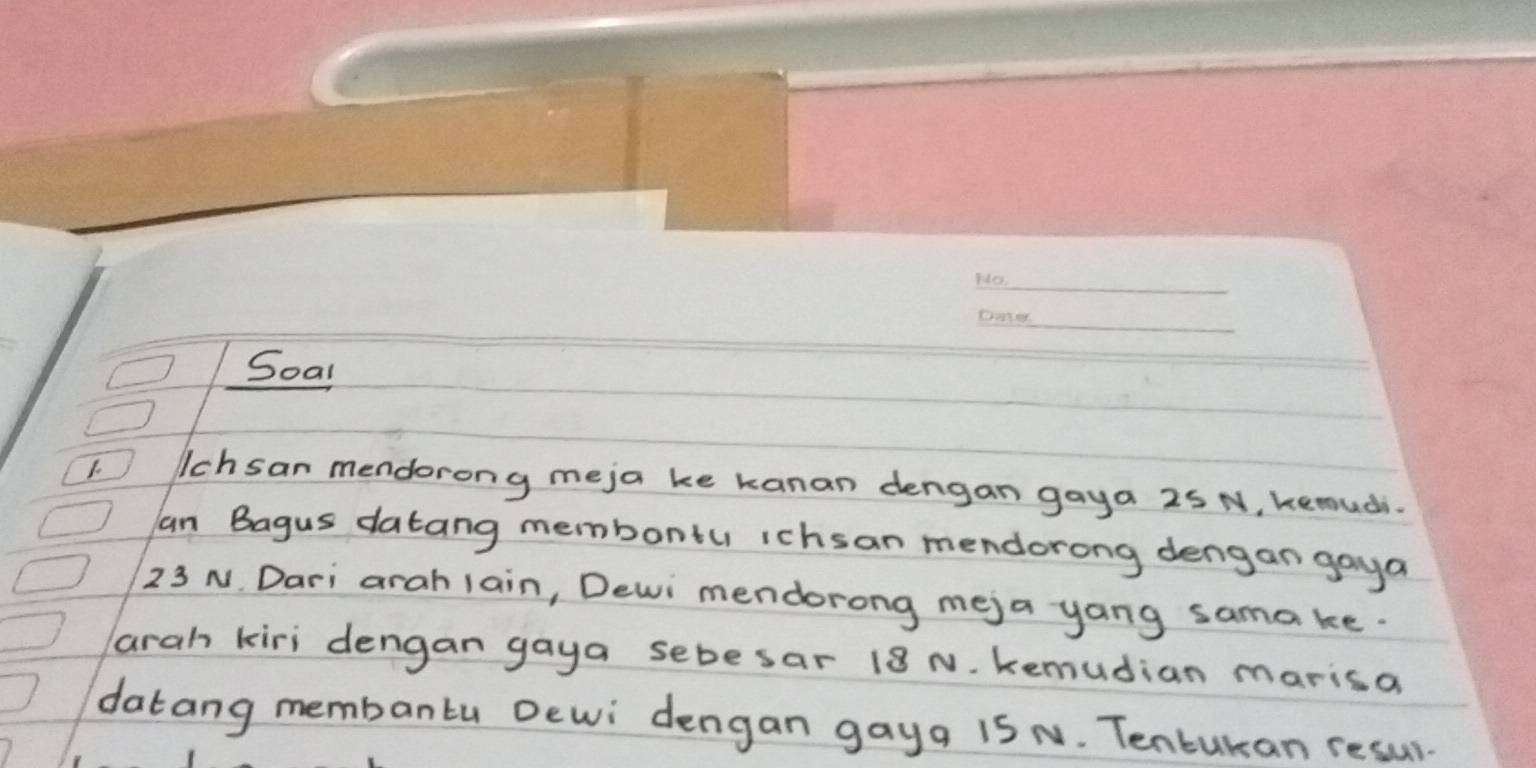 No.
Date
Soal
1. Ichsan mendorong meja ke kanan dengan gaya 25 N, kemudi-
an Bagus datang membontu ichsan mendorong dengan gaya
23 N. Dari arah lain, Dewi mendorong meja yang sama ke-
arah kiri dengan gaya sebesar 18 N. kemudian marisa
datang membantu Dewi dengan gaya 15 N. Tentukan resul-